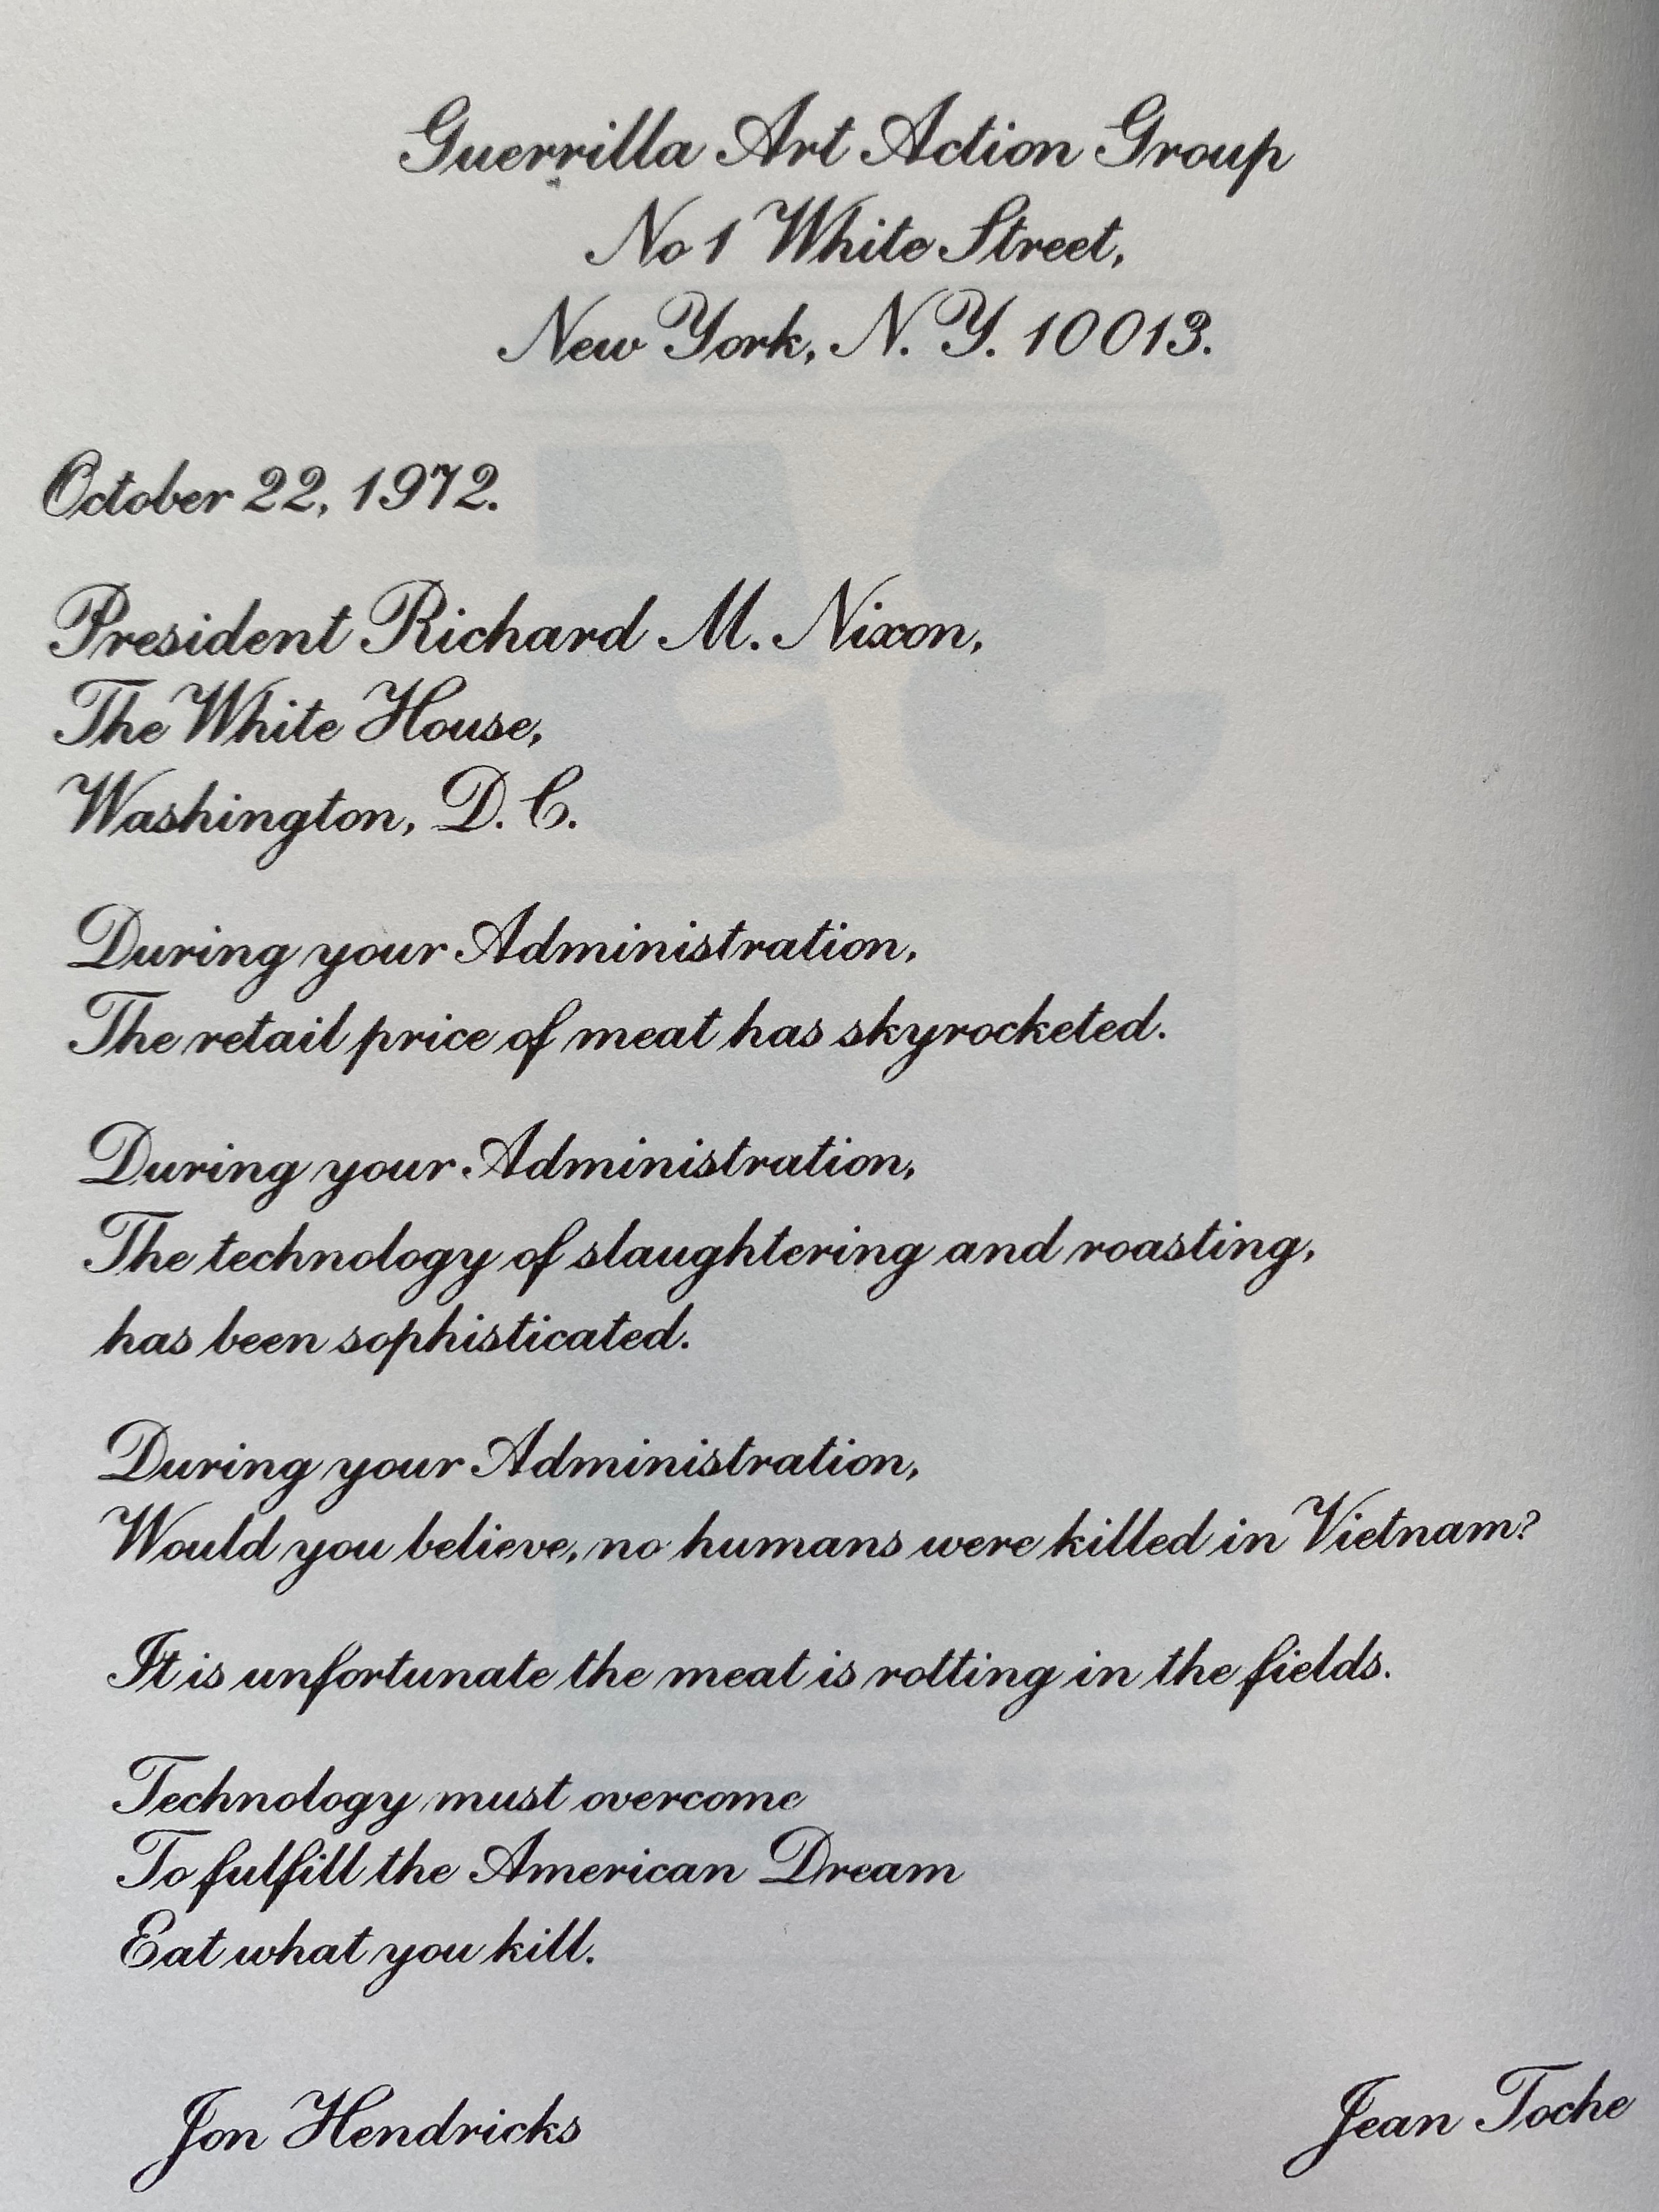 Guerrilla Art Action Group
No 1 White Street,
New York, N. Y. 10013.
October 22, 1972.
President Richard M. Nixon,
The White House,
Washington, D. C.
During your Administration,
The retail price of meat has skyrocketed.
During your Administration,
The technology of slaughtering and roasting,
has been sophisticated.
During your Administration,
Would you believe, no humans were killed in Vietnam?
It is unfortunate the meat is rotting in the fields.
Technology must overcome
To fulfill the American Dream
Eat what you kill.
Jon Hendricks Jean Toche